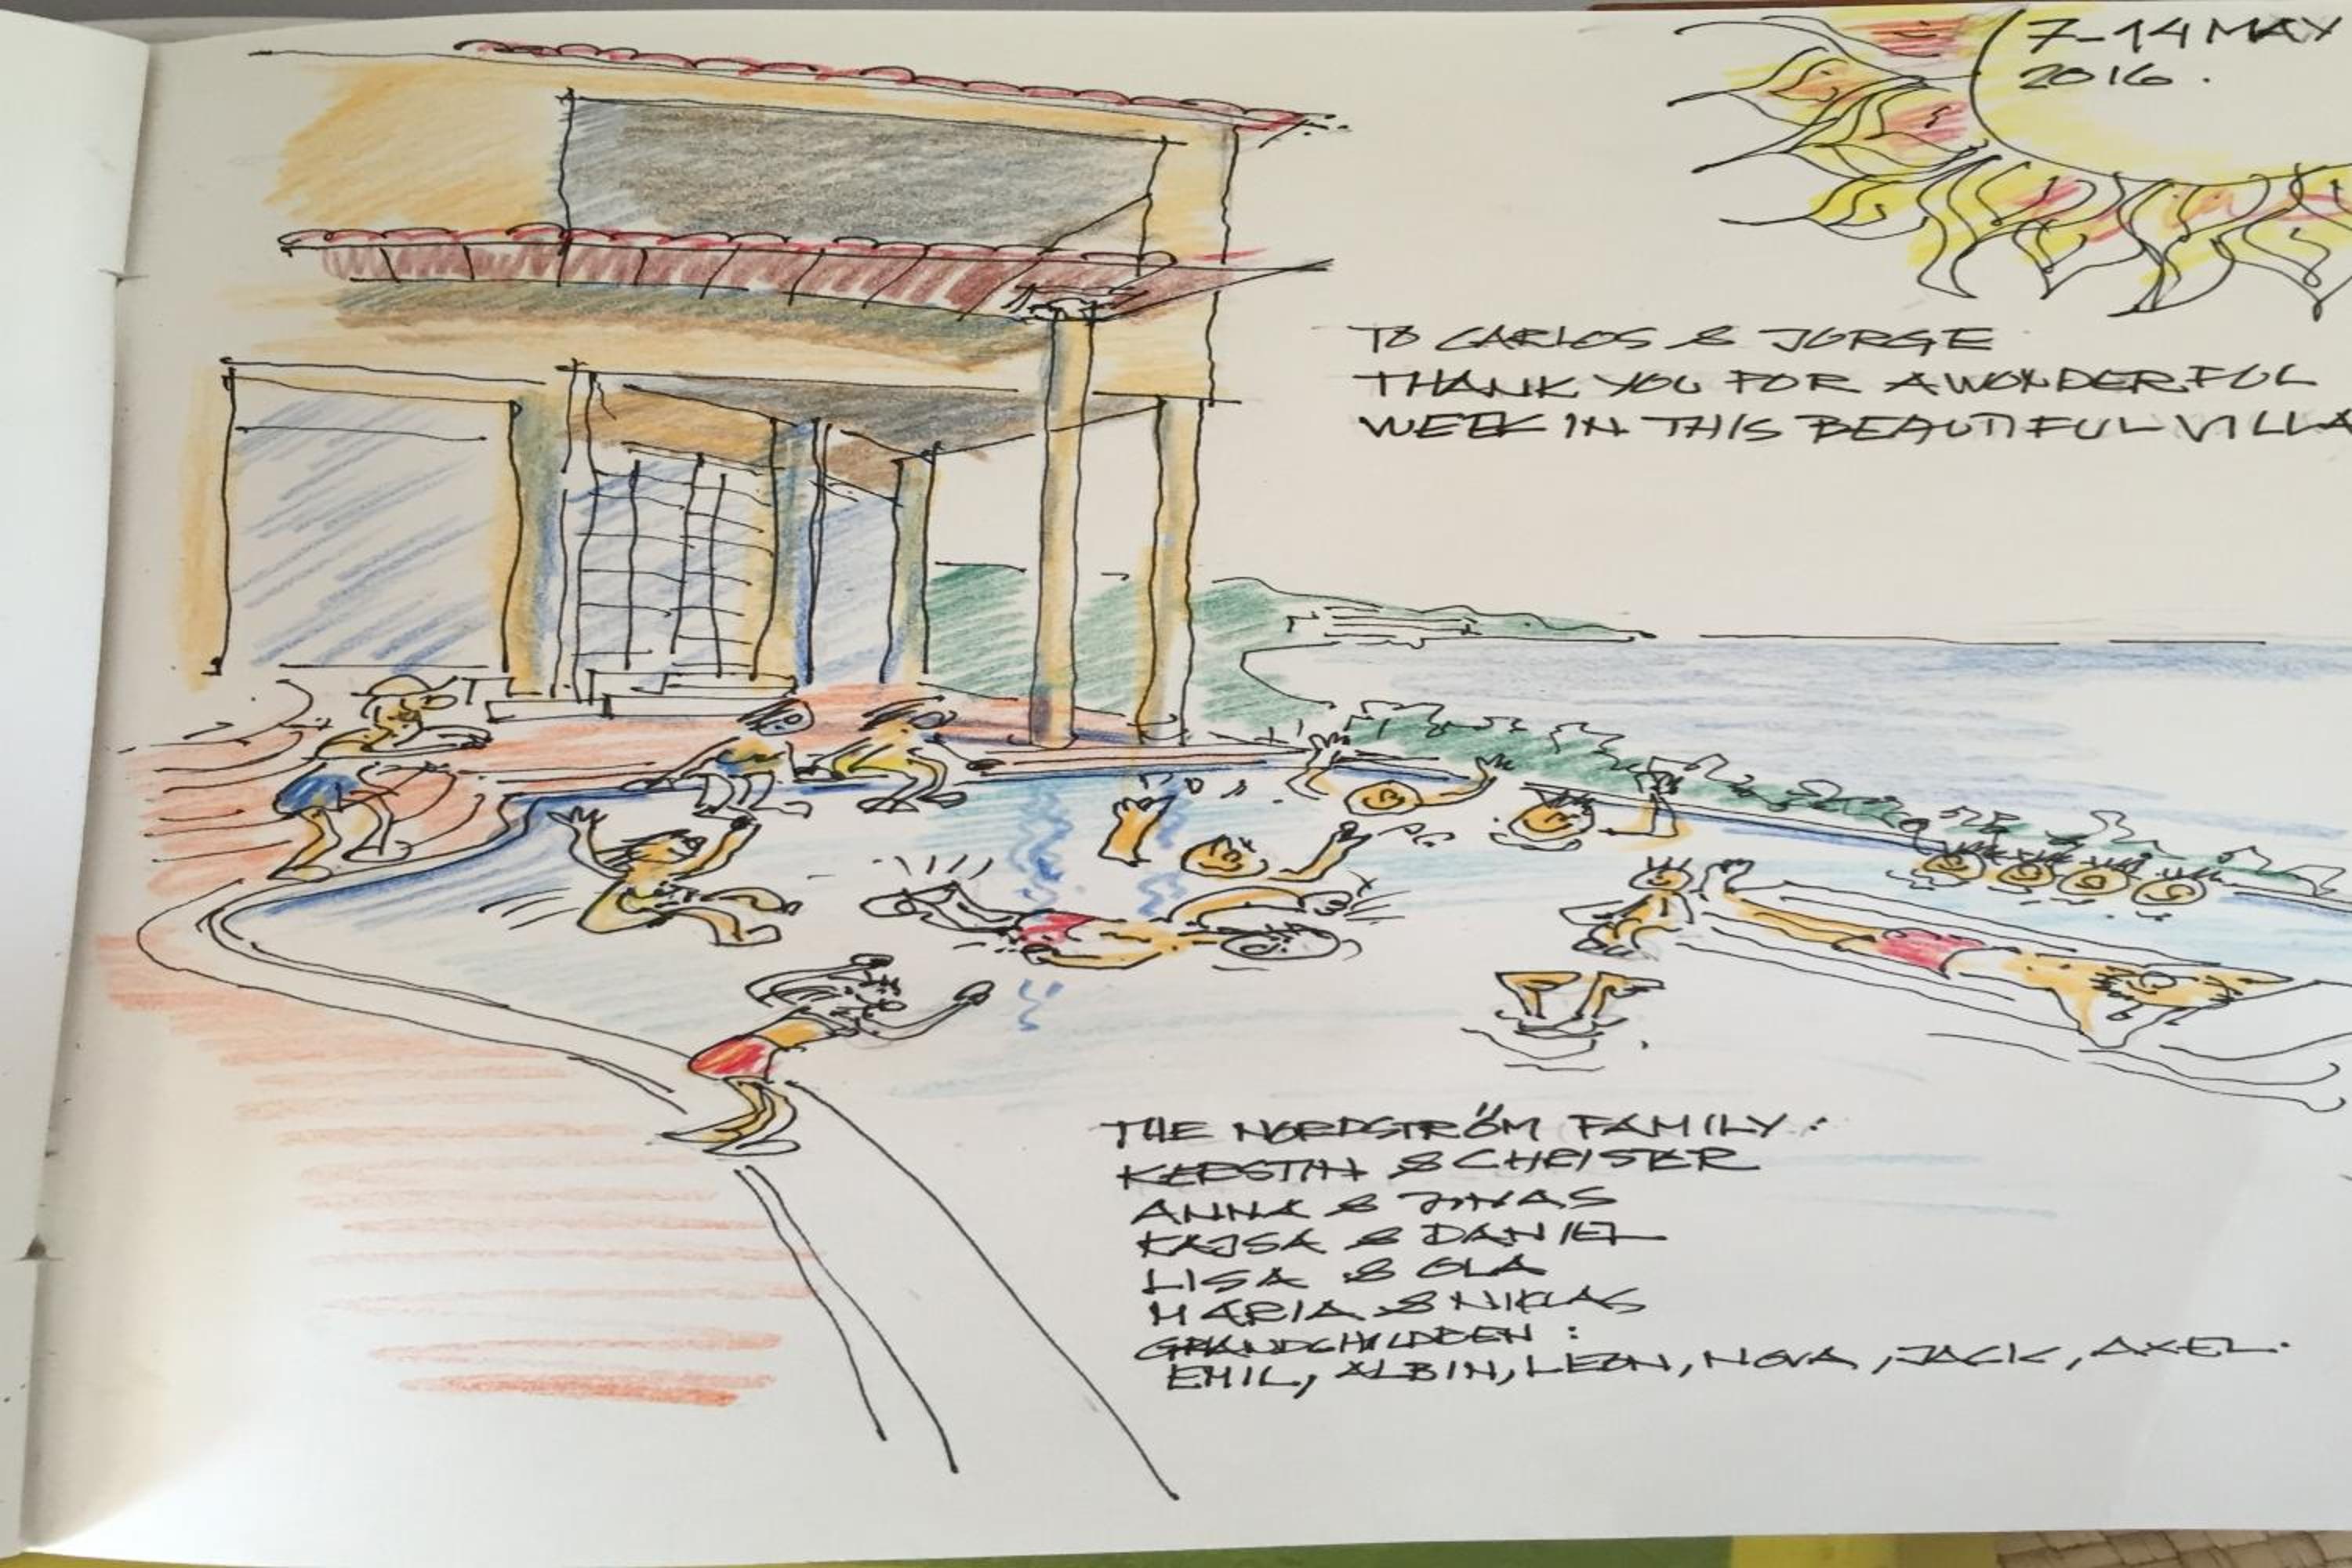 7-14 MAY
2016.
TO CARLOS & JORGE
THANK YOU FOR A WONDERFUL
WEEK IN THIS BEAUTIFUL VILLA
THE NORDSTRÖM FAMILY:
KERSTIN & CHRISTER
ANNA & JONAS
KAJSA & DANIEL
LISA & OLA
MARIA & NIKLAS
GRANDCHILDREN:
EMIL, ALBIN, LEON, NOVA, JACK, AXEL.